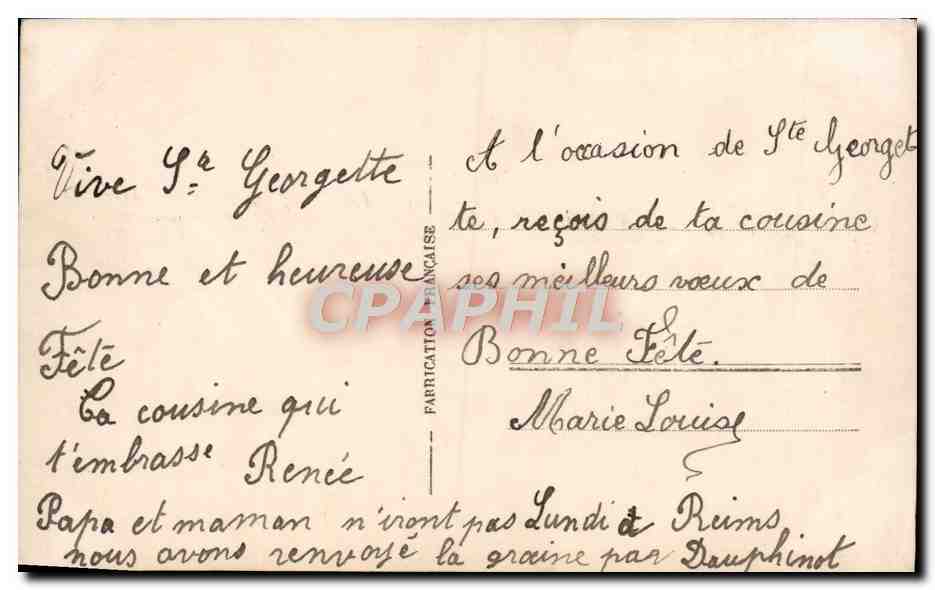 Vive Ste Georgette
Bonne et heureuse
Fête
Ta cousine qui
t'embrasse Renée
FABRICATION FRANÇAISE
A l'occasion de Ste Georget
te, reçois de ta cousine
ses meilleurs vœux de
Bonne Fête.
Marie Louise
Papa et maman n'iront pas Lundi à Reims
nous avons renvoyé la graine par Dauphinot
CPAPHIL